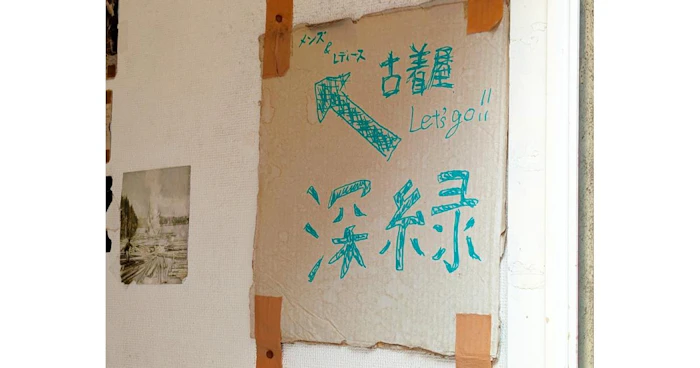 メンズ
&
レディース
古着屋
Let's go!!
深緑